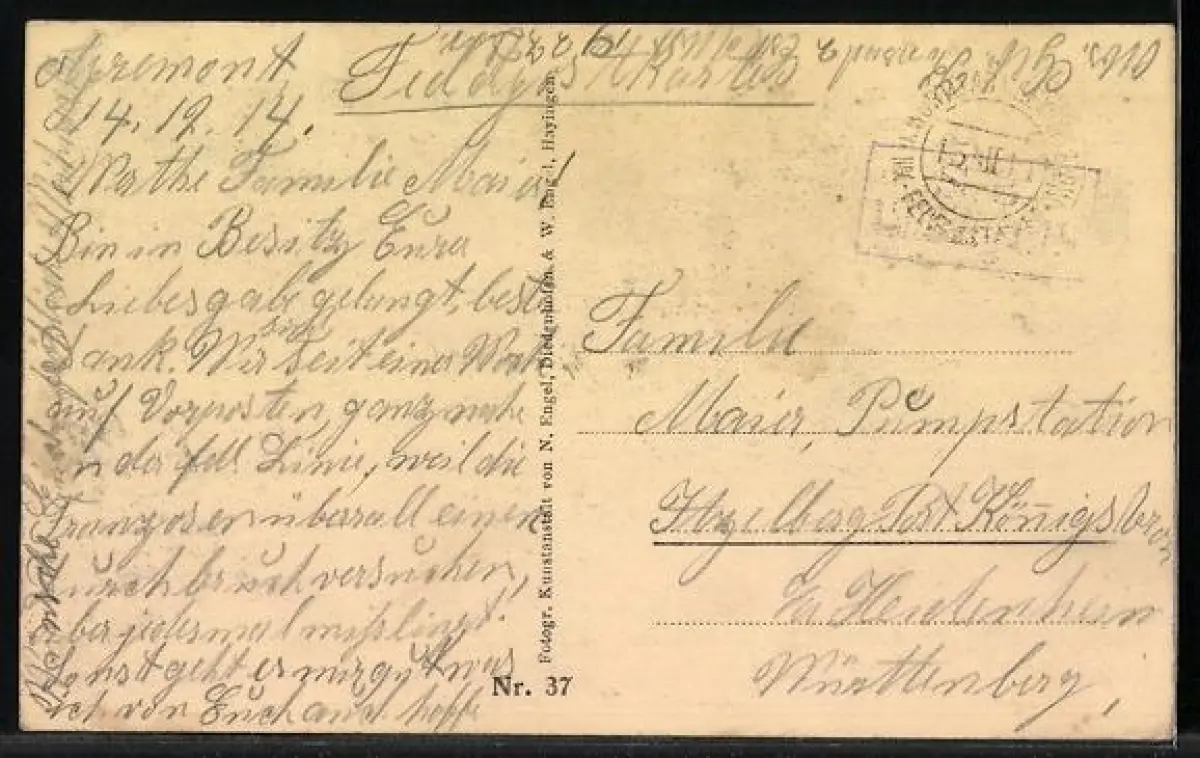 Apremont
14.12.14.
Werthe Familie Maier!
Bin in Besitz Eurer
Liebesgabe gelangt, besten
Dank. Wir sind seit einer Woche
auf Vorposten, ganz nahe
in der Linie, weil die
Franzosen überall einen
Durchbruch versuchen,
aber jedesmal mißlingt.
Sonst geht es mir gut was
ich von Euch auch hoffe
Feldpostkarte
Fotogr. Kunstanstalt von N. Engel, Diedenhofen & W. Engel, Hayingen
Nr. 37
Familie
Maier, Pumpstation
Itzelberg Post Königsbronn
Heidenheim
Württemberg,